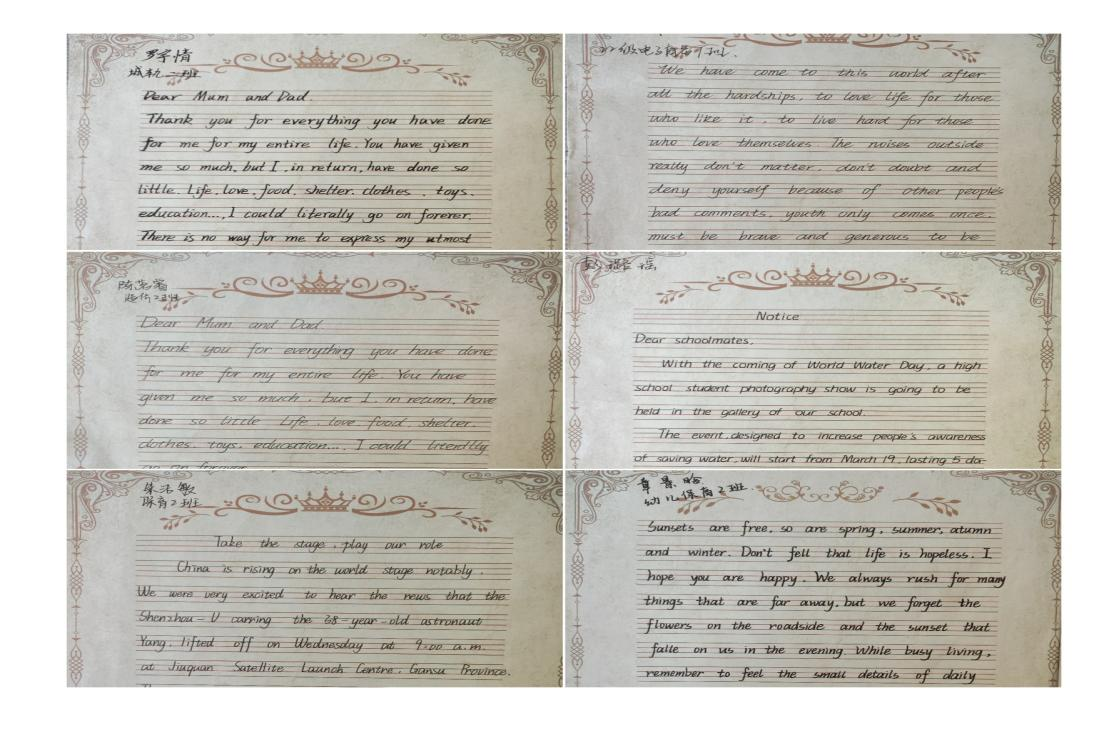 罗宇情
城轨二班
Dear Mum and Dad.
Thank you for everything you have done
for me for my entire life. You have given
me so much, but I, in return, have done so
little. Life, love, food, shelter, clothes, toys,
education..., I could literally go on forerer.
There is no way for me to express my utmost
班.
We have come to this world after
all the hardships, to love life for those
who like it, to live hard for those
who love themselves. The noises outside
really don't matter, don't doubt and
deny yourself because of other people's
bad comments, youth only comes once,
must be brave and generous to be
2班
Dear Mum and Dad
Thank you for everything you have done
for me for my entire life. You have
given me so much, but I, in return, have
done so little Life, love, food, shelter,
clothes, toys, education..., I could literally
go on forever
彭 瑶
Notice
Dear schoolmates,
With the coming of World Water Day, a high
school student photography show is going to be
held in the gallery of our school.
The event, designed to increase people's awareness
of saving water, will start from March 19, lasting 5 da-
朱洁敏
保育2班
Take the stage, play our role
China is rising on the world stage notably.
We were very excited to hear the news that the
Shenzhou-V carring the 38-year-old astronaut
Yang, lifted off on Wednesday at 9:00 a.m.
at Jiuquan Satellite Launch Centre, Gansu Province.
章景晗
幼儿保育2班
Sunsets are free, so are spring, summer, atumn
and winter. Don't fell that life is hopeless. I
hope you are happy. We always rush for many
things that are far away, but we forget the
flowers on the roadside and the sunset that
falle on us in the evening. While busy living,
remember to feel the small details of daily